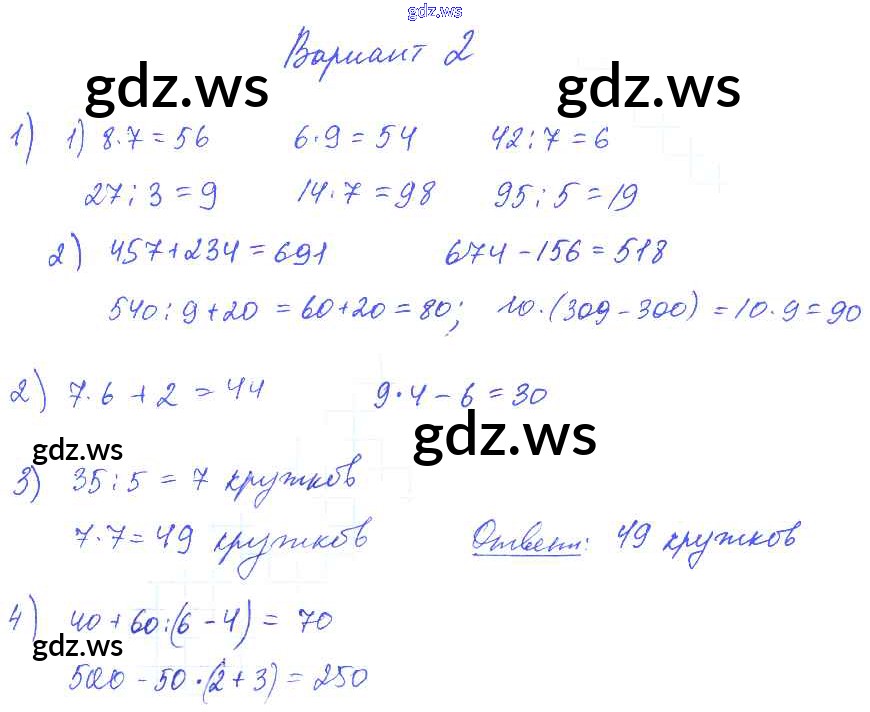 gdz.ws
Вариант 2
gdz.ws gdz.ws
1) 1) 8·7=56 6·9=54 42:7=6
27:3=9 14·7=98 95:5=19
2) 457+234=691 674-156=518
540:9+20=60+20=80; 10·(309-300)=10·9=90
2) 7·6+2=44 9·4-6=30
gdz.ws gdz.ws
3) 35:5=7 кружков
7·7=49 кружков Ответ: 49 кружков
4) 40+60:(6-4)=70
gdz.ws
500-50·(2+3)=250